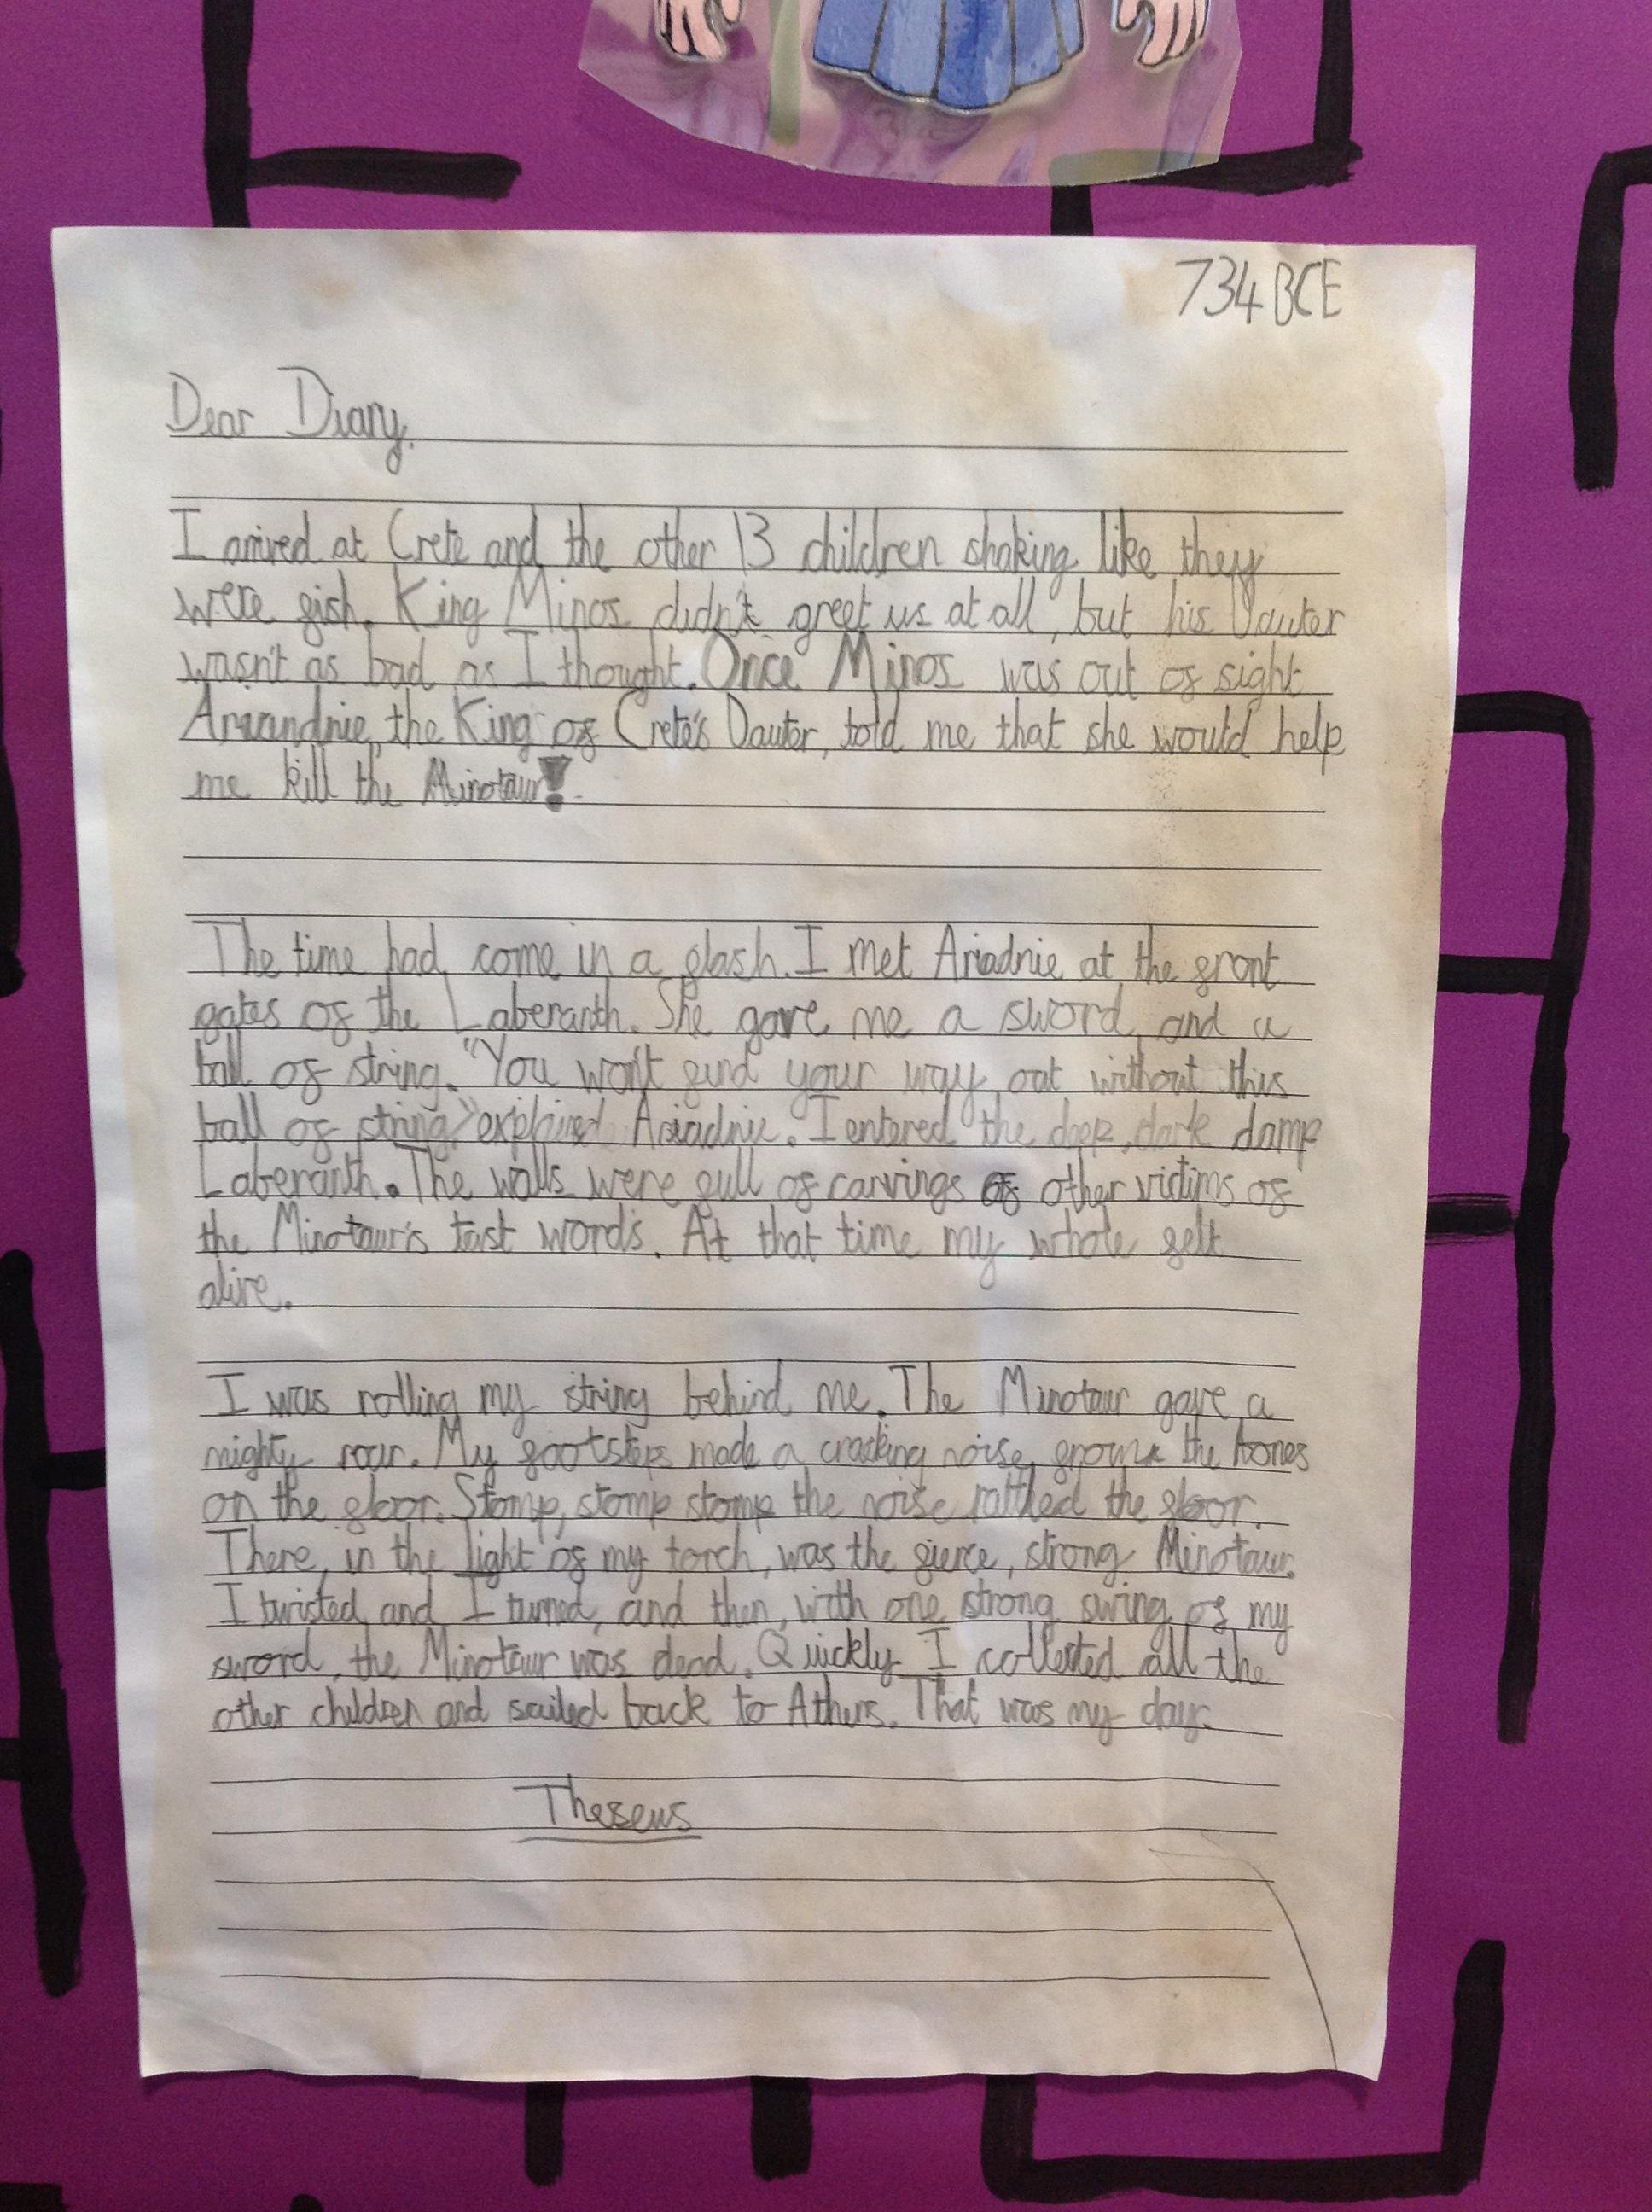 734 BCE
Dear Diary,
I arrived at Crete and the other 13 children shaking like they
were fish. King Minos didn't greet us at all, but his Dauter
wasn't as bad as I thought. Once Minos was out of sight
the King of Crete's Dauter, told me that she would help
me kill the Minotaur!
The time had come in a flash. I met Ariadnie at the front
gates of the Laberanth. She gave me a sword, and a
ball of string. "You won't find your way out without this
ball of string," explained Ariadnie. I entered the deep, dark damp
Laberanth. The walls were full of carvings of other victims of
the Minotaur's last words. At that time my whole felt
alive.
I was rolling my string behind me. The Minotaur gave a
mighty roar. My footsteps made a cracking noise, from the bones
on the floor. Stomp, stomp stomp the noise rattled the floor.
There, in the light of my torch, was the fierce, strong Minotaur.
I twisted and I turned, and then, with one strong swing of my
sword, the Minotaur was dead. Quickly I collected all the
other children and sailed back to Athens. That was my day.
Theseus